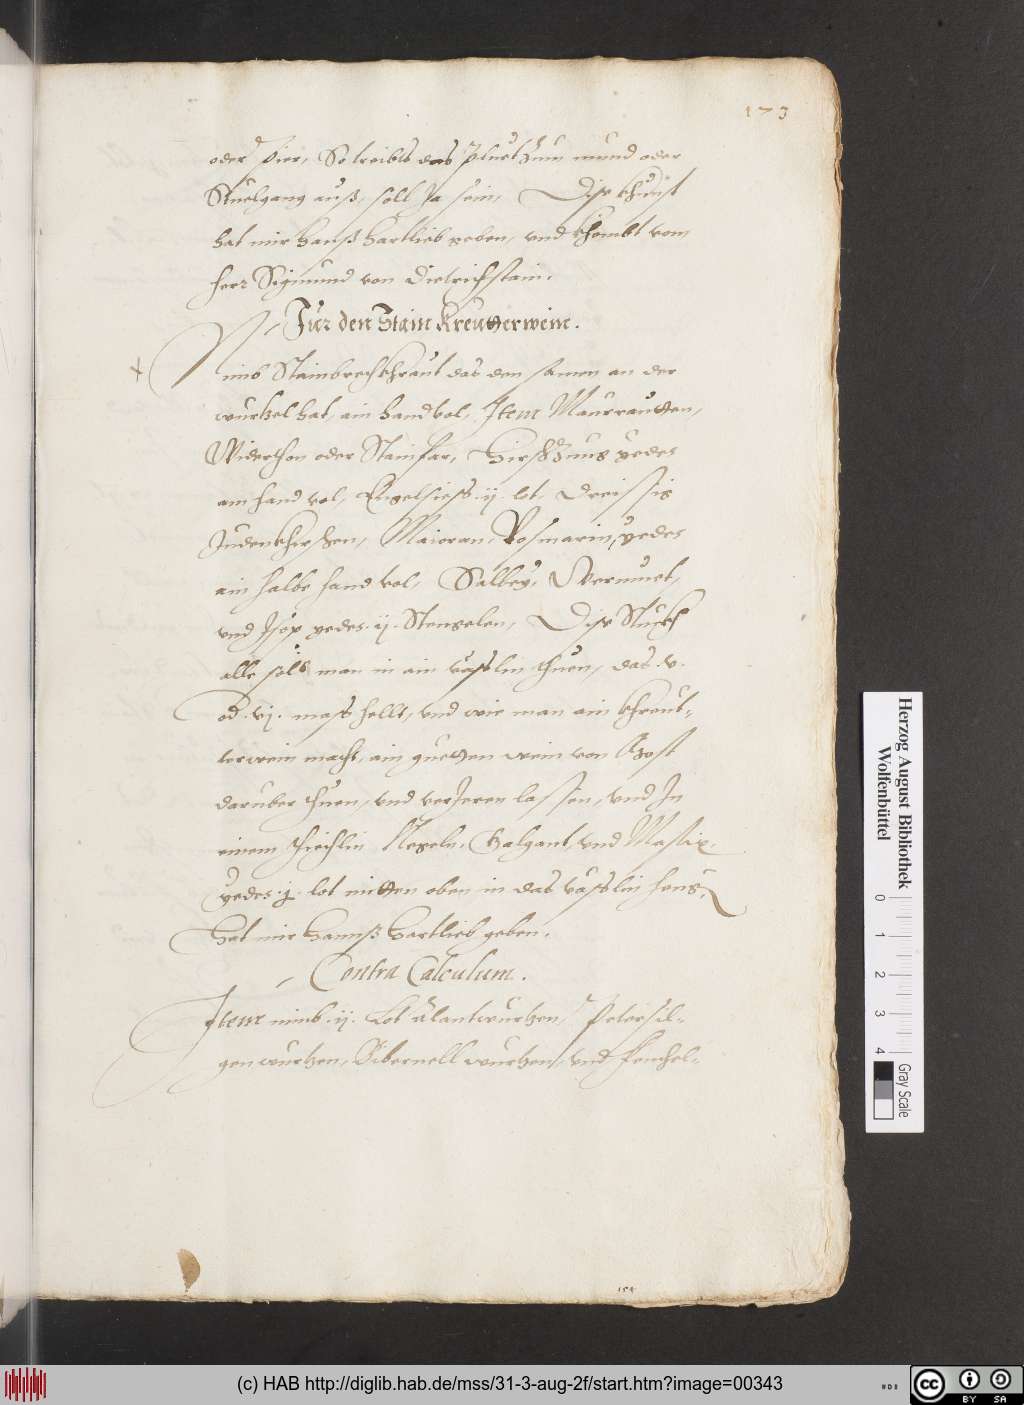 173
oder Pier, So treibts das Pluet zum mund oder
Stuelgang auß, soll Ja sein, Dise khunst
hat mir Hanß Hartlieb geben, vnd khombt vom
herr Sigmund von Dietrichstain.
Für den Stain Kreütterwein.
Nimb Stainbrechkhraut das den samen an der
wurtzel hat, ain handvol, Item Maurrautten,
Widerthon oder Stainfar, Hirschzung yedes
ain hand vol, Engelsiess .ij. lot, Dreissig
Judenkherssen, Maioran, Rosmarin, yedes
ain halbe hand vol, Salbey, Wermuet,
vnd Isop yedes .ij. Stengelen, Dise Stuckh
alle soll man in ain vässlin thuen, das .v.
od .vj. mass hellt, vnd wie man ain khreut-
terwein macht, ain guetten wein von Most
daruber thuen, vnd verJeren lassen, vnd In
einem thiechlin Negeln, Galgant, vnd Mastix,
yedes .j. lot mitten oben in das vässlin heng,
Hat mir Hannß Hartlieb geben.
Contra Calculum.
Item nimb .ij. Lot alantwurtzen, Petersil-
genwurtzen, Bibernell wurtzen, vnd fenchel-
Herzog August Bibliothek
Wolfenbüttel
0 1 2 3 4
Gray Scale
(c) HAB http://diglib.hab.de/mss/31-3-aug-2f/start.htm?image=00343
cc BY SA